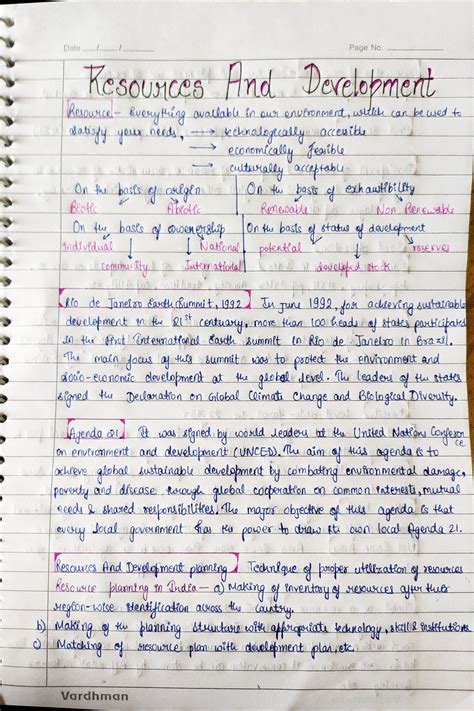 Date ..../..../....
Page No.
Resources And Development
Resource - Everything available in our environment, which can be used to
satisfy your needs, → technologically accesible
→ economically feasible
→ culturally acceptable
On the basis of origin
On the basis of exhaustibility
Biotic Abiotic
Renewable Non Renewable
On the basis of ownership
On the basis of status of development
Individual National
potential reserves
community International
developed stock
Rio de Janeiro Earth Summit, 1992 In June 1992, for achieving sustainable
development in the 21st century, more than 100 heads of states participated
in the first International Earth summit in Rio de Janeiro in Brazil.
The main focus of this summit was to protect the environment and
socio-economic development at the global level. The leaders of the states
signed the Declaration on Global Climate Change and Biological Diversity.
Agenda 21 It was signed by world leaders at the United Nations Conferen
ce
on environment and development (UNCED). The aim of this agenda is to
achieve global sustainable development by combating environmental damage,
poverty and disease through global cooperation on common interests, mutual
needs & shared responsibilities. The major objective of this agenda is that
every local government has the power to draw its own local Agenda 21.
Resources And Development planning Technique of proper utilization of resources
Resource planning in India - a) Making of inventory of resources after their
region-wise identification across the country.
b) Making of the planning structure with appropriate technology, skill & institutions
c) Matching of resource plan with development plan, etc.
Vardhman